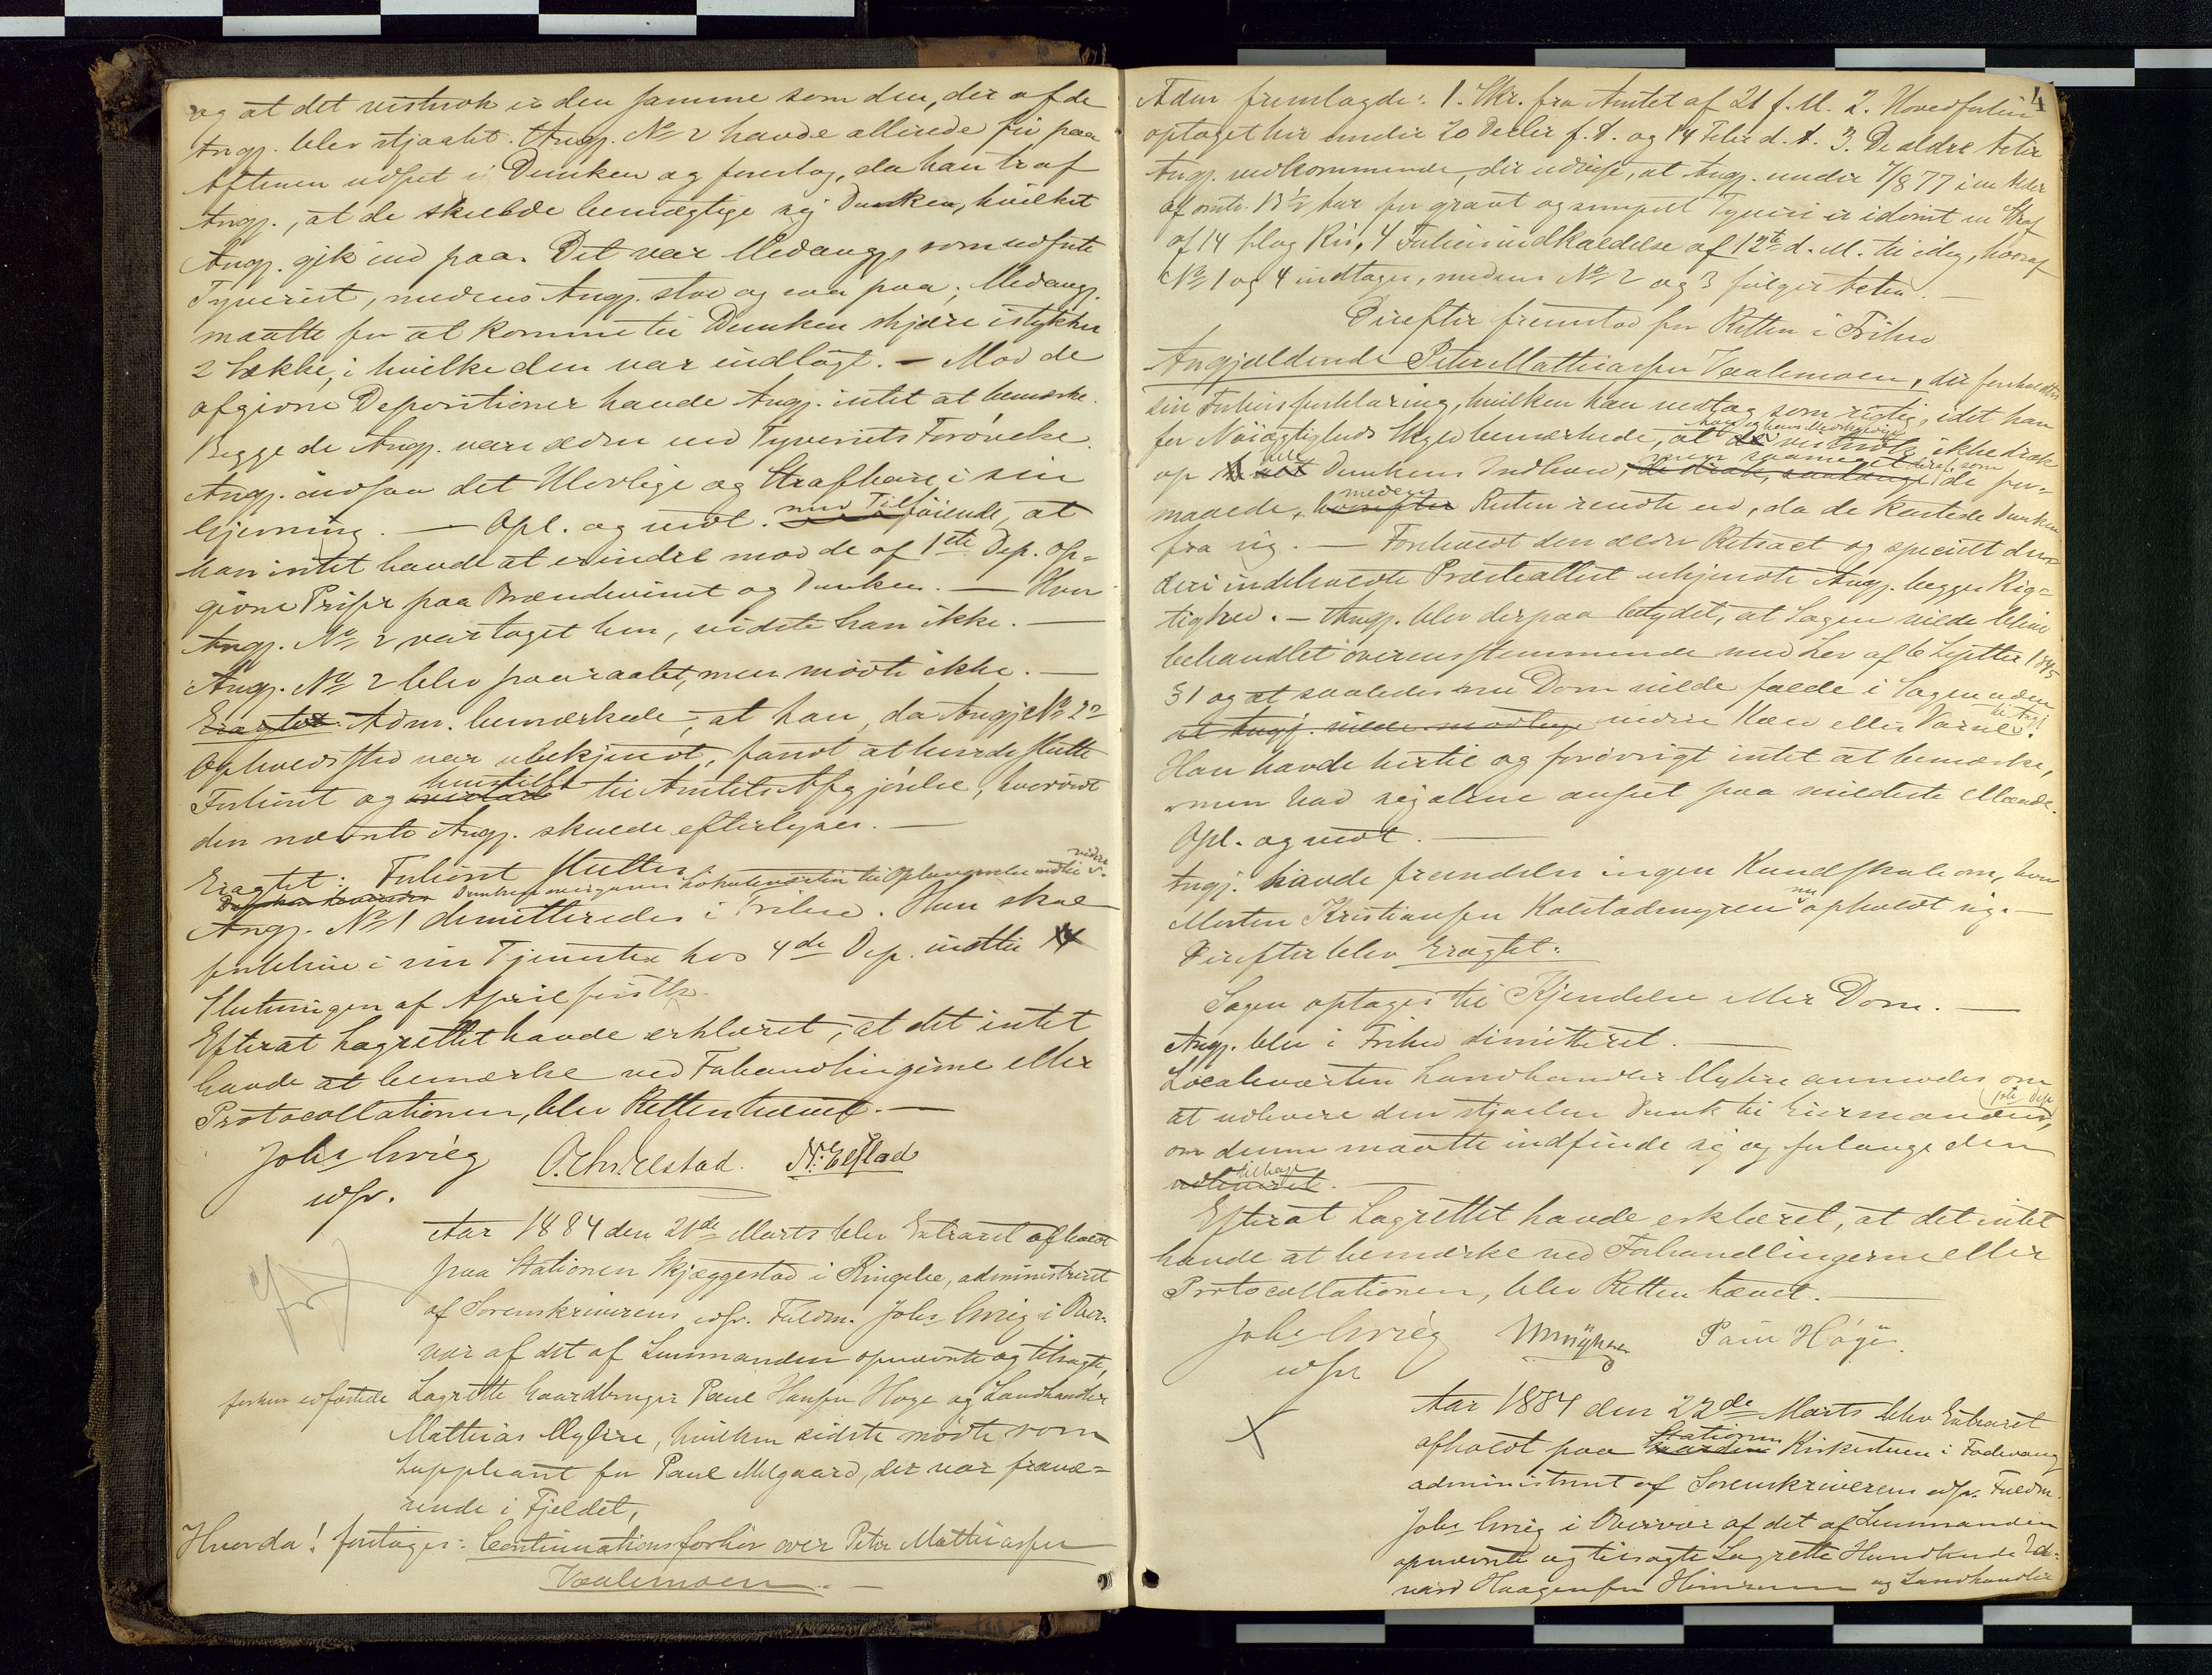 og at det vistnok er den samme som den, der af de
Angj. blev stjaalet. Angj. No 2 havde allerede før paa
Aftenen udseet sig Dunken og foreslog, da han traf
Angj., at de skulde bemægtige sig Dunken, hvilket
Angj. gik ind paa. Det var Medangj. som udførte
Tyveriet, medens Angj. stod og saa paa; Medangj.
maatte for at komme til Dunken skjære istykker
2 Sække, i hvilke den var indlagt. – Mod de
afgivne Depositioner havde Angj. intet at bemærke.
Begge de Angj. vare ædru ved Tyveriets Forøvelse.
Angj. indsaa det Ulovlige og Strafbare i sin
Gjerning. — Opl. og vedt. med Tilføiende, at
han intet havde at erindre mod de af 1ste Dep. op-
givne Priser paa Brændevinet og Dunken. — Hvor
Angj. No 2 var taget hen, vidste han ikke. —
Angj. No 2 blev paaraabt, men mødte ikke. —
Eragtet: Adm. bemærkede, at han, da Angj. No 2s
Opholdssted var ubekjendt, fandt at burde slutte
Forhøret og henstille til Amtets Afgjørelse, hvorvidt
den nævnte Angj. skulde efterlyses. —
Eragtet: Forhøret sluttes
Dunken overgives Lokaleværten til Opbevarelse indtil videre.
Angj. No 1 demitteredes i Frihed. Han skal
forblive i sin Tjeneste hos 4de Dep. indtil
Slutningen af April førstk.
Efterat Lagrettet havde erklæret, at det intet
havde at bemærke ved Forhandlingerne eller
Protocollationen, blev Retten hævet. —
Johs Grieg O. Chr. Elstad. N. Elstad
edsv.
Aar 1884 den 21de Marts blev Extraret afholdt
paa Stationen Skjæggestad i Ringebu, administreret
af Sorenskriverens edsv. Fuldm. Johs Grieg i Over-
vær af det af Lensmanden opnævnte og tilsagte,
forhen edfæstede Lagrette Gaardbruger Paul Hansen Høge og Landhandler
Mathias Myhre, hvilken sidste mødte som
Suppleant for Paul Melgaard, der var fravæ-
rende i Fjeldet,
Hvorda! foretages: Continuationsforhør over Peter Mathiassen
Vaalemoen. —
4
Adm fremlagde: 1. Skr. fra Amtet af 21 f. M. 2. Hovedforhør
optaget her under 20 Decbr f. A. og 14 Febr d. A. 3. De ældre Acter
Angj. vedkommende, der udvise, at Angj. under 7/8 77 i en Alder
af omtr. 13½ Aar for gravt og simpelt Tyveri er idømt en Straf
af 14 Slag Ris, 4 Forhørsindkaldelse af 12te d. M. til idag, hvoraf
No 1 og 4 indtages, medens No 2 og 3 følger Acten. —
Derefter fremstod for Retten i Frihed
Angjældende Peter Mathiassen Vaalemoen, der foreholdtes
sin Forhørsforklaring, hvilken han vedtog som rigtig, idet han
for Nøiagtigheds Skyld bemærkede, at han og hans Medskyldige ikke drak
op alt hele Dunkens Indhold, men saameget deraf, som de for-
maaede, medens Resten rendte ud, da de kastede Dunken
fra sig. — Foreholdt den ældre Retsact og specielt den
deri indeholdte Præsteattest erkjendte Angj. begges Rig-
tighed. – Angj. blev derpaa betydet, at Sagen vilde blive
behandlet overensstemmende med Lov af 6 Septbr 1845
§ 1 og at saaledes nu Dom vilde falde i Sagen uden
at Angj. vilde modtage videre Kald eller Varsel til Angj.
Han havde hertil og forøvrigt intet at bemærke,
men bad sig alene anseet paa mildeste Maade.
Opl. og vedt. —
Angj. havde fremdeles ingen Kundskab om, hvor
Morten Kristiansen Kolstadengen nu opholdt sig. —
Derefter blev Eragtet:
Sagen optages til Kjendelse eller Dom. —
Angj. blev i Frihed dimitteret. —
Localeværten Landhandler Myhre anmodes om
at udlevere den stjaalne Dunk til Eiermanden,
om denne maatte indfinde sig og forlange den
tilbage. —
Efterat Lagrettet havde erklæret, at det intet
havde at bemærke ved Forhandlingerne eller
Protocollationen, blev Retten hævet. —
Johs Grieg M Myhre Paul Høge.
edsv
Aar 1884 den 22de Marts blev Extraret
afholdt paa Gaarden Stationen Kirkestuen i Fodvang
administreret af Sorenskriverens edsv. Fuldm.
Johs Grieg i Overvær af det af Lensmanden
opnævnte og tilsagte Lagrette
Haagensen og Landhandler